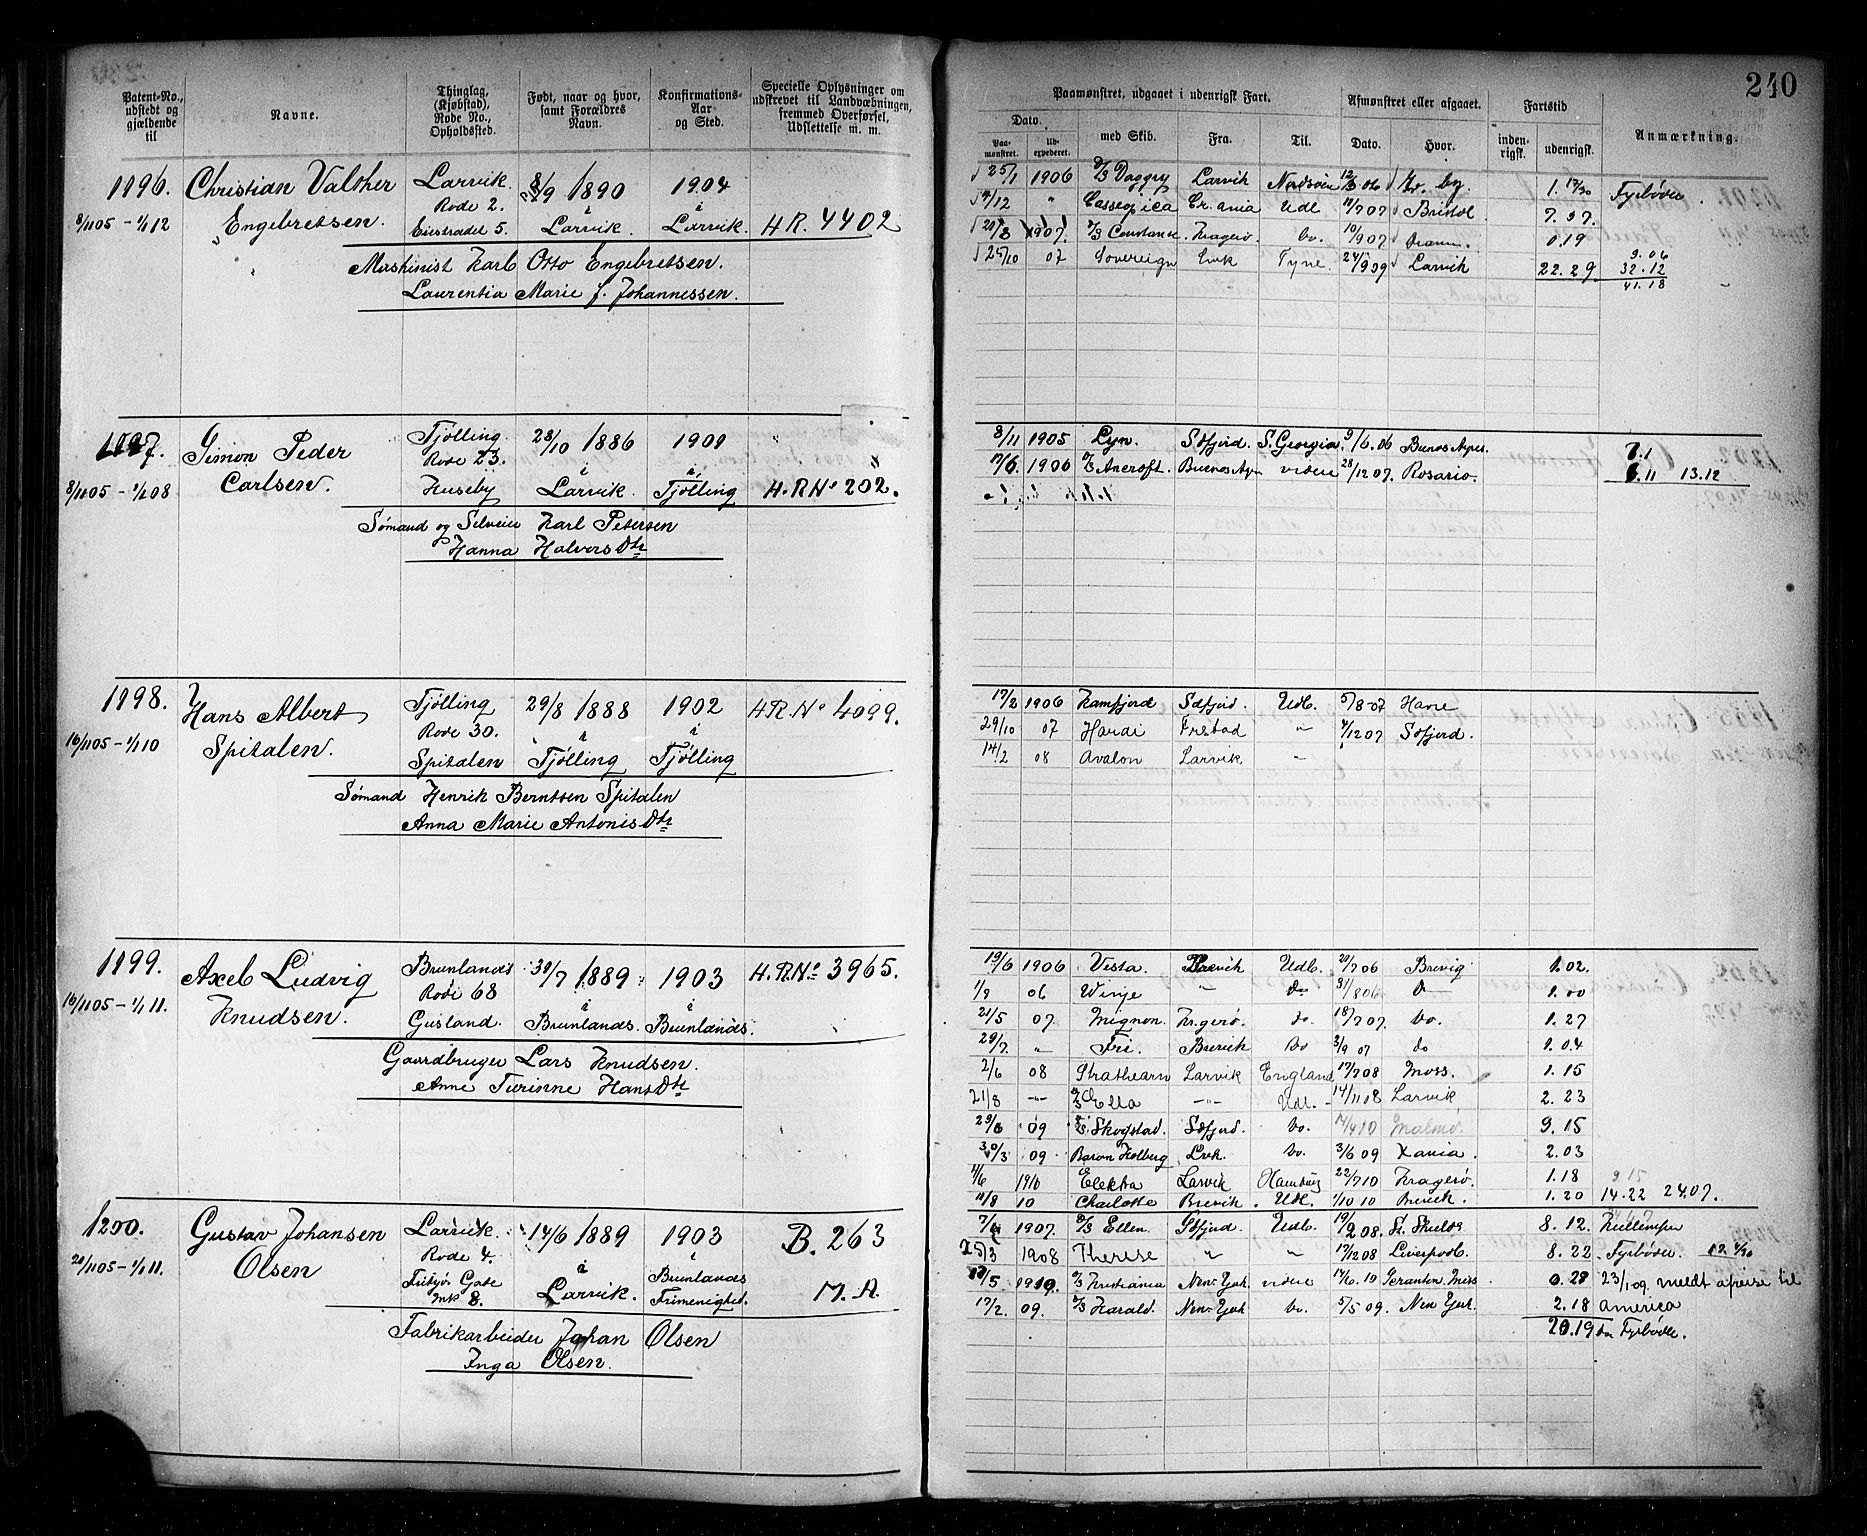 240
Patent-No., udstedt og gjældende til
Navne.
Thinglag, (Kjøbstad), Rode No., Opholdsted.
Født, naar og hvor, samt Forældres Navn.
Konfirmations-Aar og Sted.
Specielle Oplysninger om udskrevet til Landvæbningen, fremmed Overførsel, Udslettelse m. m.
Paamønstret, udgaaet i udenrigsk Fart.
Afmønstret eller afgaaet.
Fartstid
Anmærkning.
Dato. med Skib. Fra. Til. Dato. Hvor. inden-rigsk. udenrigsk.
Paa-mønstret. Ud-expederet.
1196. Christian Valther Larvik. 8/9 1890 1904
Rode 2. á á
8/11 05 - 1/1 12 Engebretsen. 5. Larvik. Larvik. H R. 4402
Maskinist Karl Otto Engebretsen.
Laurentia Marie f. Johannessen.
25/1 1906 D/S Daggry Larvik Nordsöen 1. 17/30 Fyrböder
7/12 " Cassiopeia Cr. ania Udl 11/7 07 Bristol 7. 07.
1907. D/S Constance Kragerø. Do. 10/9 07 Dramm. 0.19
25/10 07 Sovereign Lvk Tyne. 24/9 09 Larvik 22. 29
9. 06
32. 12
41. 18
1197. Simon Peder Tjølling 23/10 1886 1901
Rode 23. á á
8/11 05 - 1/1 08 Carlsen. Huseby Larvik. Tjølling H. R No 202.
Sømand og Selveier Karl Petersen
Hanna Halvors Dtr
8/11 1905 Lyn. Sdfjord. S. Georgia. 9/6. 06 Buenos Ayres. 7.1
17/6. 1906 Ancroft. Buenos Ayr videre 28/12 07. Rosario. 6.11 13.12
1198. Hans Albert Tjølling 29/8 1888 1902 H. R. No 4099.
Rode 30. á
16/11 05 - 1/1 10 Spitalen. Spitalen Tjølling Tjølling
Sømand Henrik Berntsen Spitalen
Anna Marie Antonis Dtr
17/2 1906 Kamfjord Sdfjord. Udl. 5/8-07 Havre
29/10 07 Hardi Frstad " 4/12 07 Sdfjord.
14/2 08 Avalon Larvik "
1199. Axel Ludvig Brunlanæs 30/7 1889 1903 H. R. No 3965.
Rode 68 á á
16/11 05 - 1/1 11. Knudsen. Gusland. Brunlanæs. Brunlanæs.
Gaardbruger Lars Knudsen.
Anne Turinne Hans Dtr
19/6 1906 Vesta. Brevik Udl. 20/7 06 Brevig 1. 02.
1/8 06 Winge " Do 31/8 06 Do 1. 00
21/5 07 Mignon. Kr.gerø. Do. 18/7 07. Do. 1. 27
29/7. " Fri. Brevik Do 3/9 07 do 1. 04
2/6 08 Strathearn Larvik England 17/7 08 Moss. 1. 15
21/8 -"- D/S Ella -"- Udl. 14/11 08 Larvik 2. 23
29/6 09 D/S Skogstad. Sdfjord. Do. 14/4 10 Malmö. 9. 15
30/3 09 Baron Holberg Lvk. Do. 3/6 09 Xania. 2. 03
11/6 1910 Elekta Larvik Hamburg 22/7 10 Kragerø. 1. 18 9 15
11/8 10 Charlotte Brevik. Udl. 1/10 10 Brevik. 1. 20 14.22 24.07.
1200. Gustav Johansen Larvik. 14/6 1889 1903 B. 263
Rode 4. á á
21/11 05 - 1/1 11. Olsen Gade 8. Larvik. Brunlanæs Frimenighed. M. A.
Fabrikarbeider Johan Olsen
Inga Olsen.
1907. D/S Ellen. Sdfjord. Udl. 08. 8. 12. Kullemper
1908 Therese " " 17/12 08 Liverpool. 8. 22 Fyrböder.
/5. 1910. D/S Kristiania New York videre 0. 28 23/1 09 meldt afreise til
17/2. 09. D/S Harald. New York Do. 5/5 09. New York. 2. 18 America
20.19 Fyrböder.